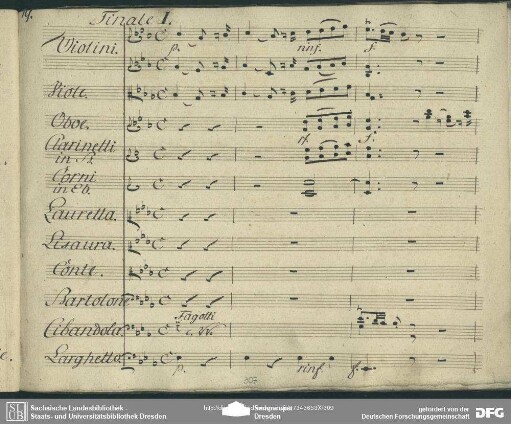 Finale I.
Violini.
p.
rinf.
f.
Viole.
Oboe.
rf
f.
Clarinetti
in
Corni
in Eb.
Lauretta.
Lisaura.
Conte.
Bartolone
Fagotti
Cibandola.
Larghetto
p.
rinf
f.
Sächsische Landesbibliothek
Staats- und Universitätsbibliothek Dresden
Dresden
gefördert von der
Deutschen Forschungsgemeinschaft
DFG